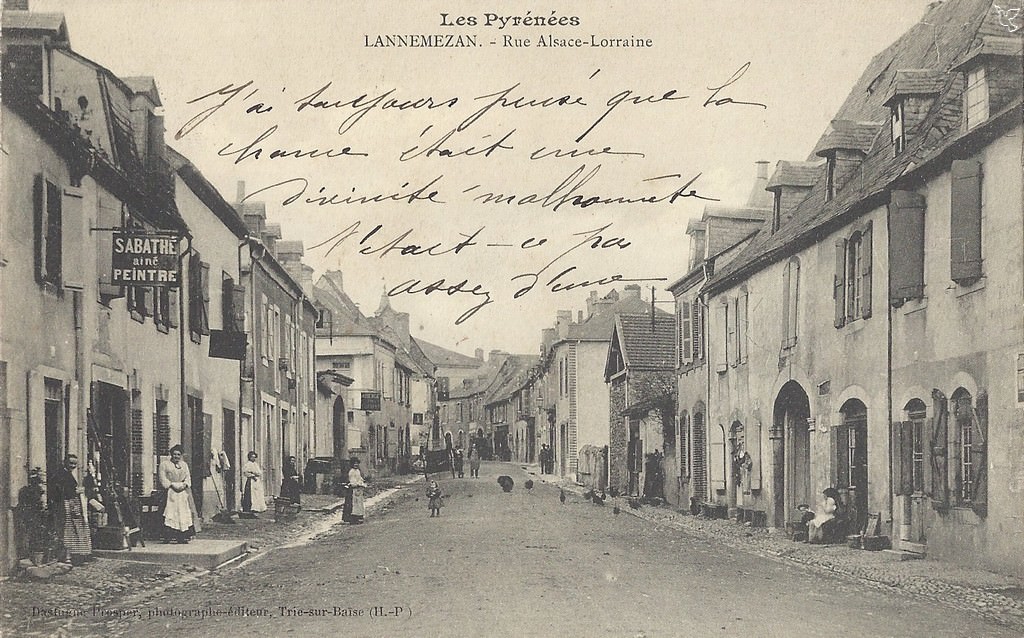 Les Pyrénées
LANNEMEZAN. - Rue Alsace-Lorraine
J'ai toujours pensé que la
chance était une
divinité malhonnête
N'était-ce pas
assez d'une
SABATHÉ
ainé
PEINTRE
Dastugue Prosper, photographe-éditeur, Trie-sur-Baïse (H.-P.)